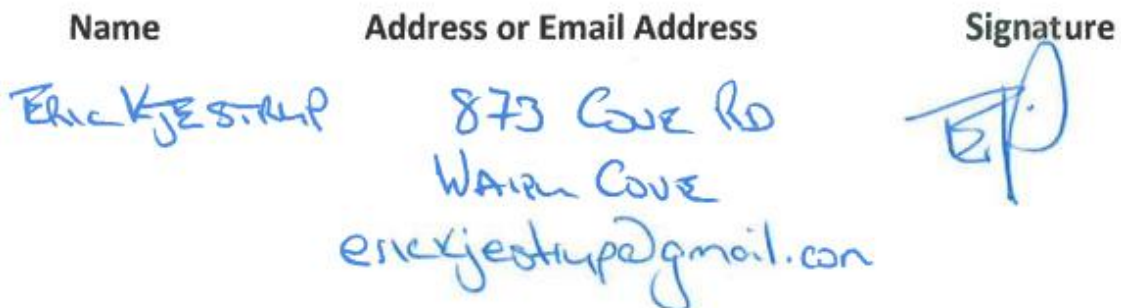 Name Address or Email Address Signature
Eric Kjestrup 873 Cove Rd
Waipu Cove
erickjestrup@gmail.com